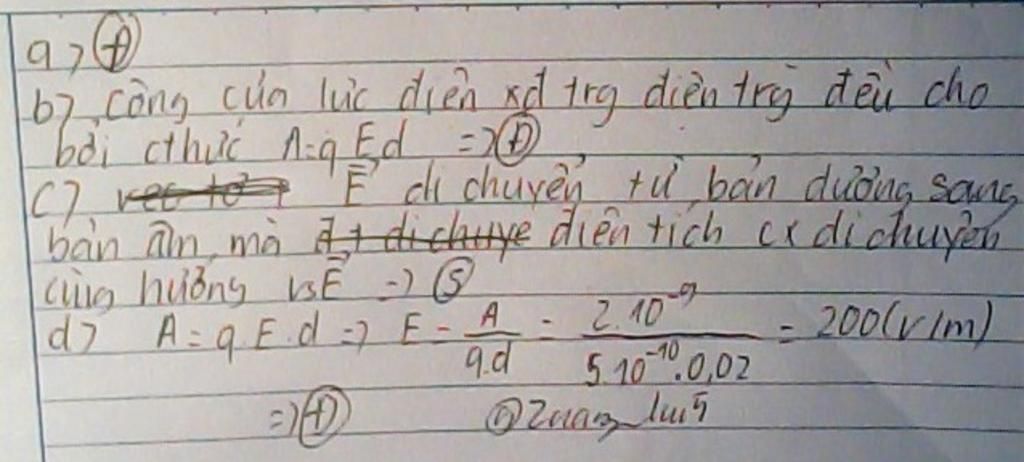 a> Đ
b> Công của lực điện xđ trg điện trg đều cho
bởi cthức A=qEd => Đ
c> E di chuyển từ bản dương sang
bản âm, mà điện tích cx di chuyển
cùng hướng vs E => S
d> A = q.E.d => E = A/q.d = 2.10^-9/5.10^-10.0,02 = 200(V/m)
=> Đ